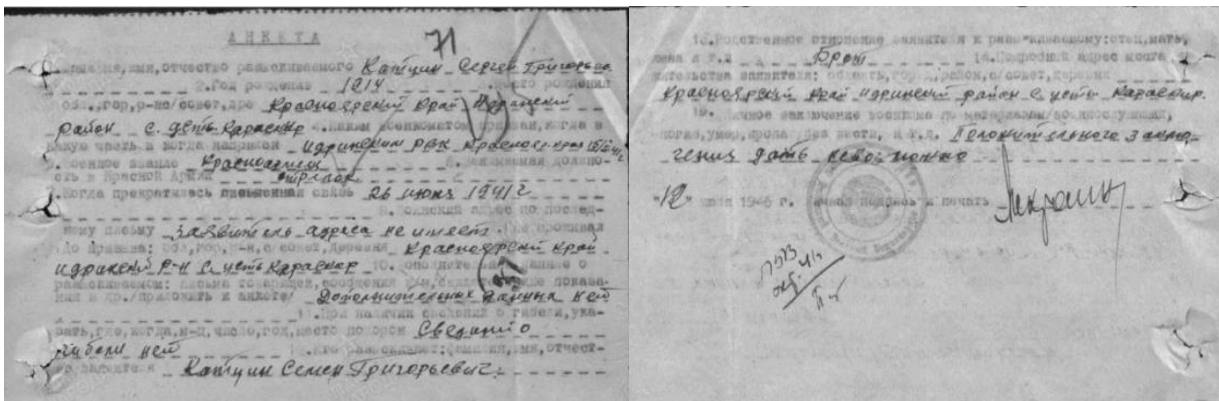 АНКЕТА
71
имя, отчество разыскиваемого Катцин Сергей Григорьев
2. Год рождения 1914 место рождения
обл., гор, р-не/совет, дре Красноярский край Идринский
район с. Усть Караскыр 4. Каким военкоматом призван, когда в
какую часть и когда направлен Идринским РВК Краснояр края
5. Военное звание Красноармеец 6. Занимаемая должно-
сть в Красной Армии стрелок
7. Когда прекратилась письменная связь 26 июня 1941 г
8. Воинский адрес по послед-
нему письму заявитель адреса не имеет проживал
до призыва: обл, гор, р-н, с/совет, деревня Красноярский край
Идринский р-н с. Усть Караскыр 10. Дополнительные данные о
разыскиваемом: письма товарищей, сообщения
ния и др. /приложить к анкете/ Дополнительных данных нет
11. При наличии сведений о гибели, ука-
зать, где, когда, м-ц, число, год, место похорон Сведений о
гибели нет
12. Кто разыскивает: фамилия, имя, отчест-
Катцин Семен Григорьевич.
13. Родственное отношение заявителя к разыскиваемому: отец, мать,
жена и т.д Брат 14. Подробный адрес места
жительства заявителя: область, город, район, с/совет, деревня
Красноярский край Идринский район с. Усть Караскыр.
15. Личное заключение военкома по материалам
погиб, умер, пропал без вести, и т.д. Положительного заклю-
чения дать невозможно
"12" июня 1946 г. Личная подпись и печать